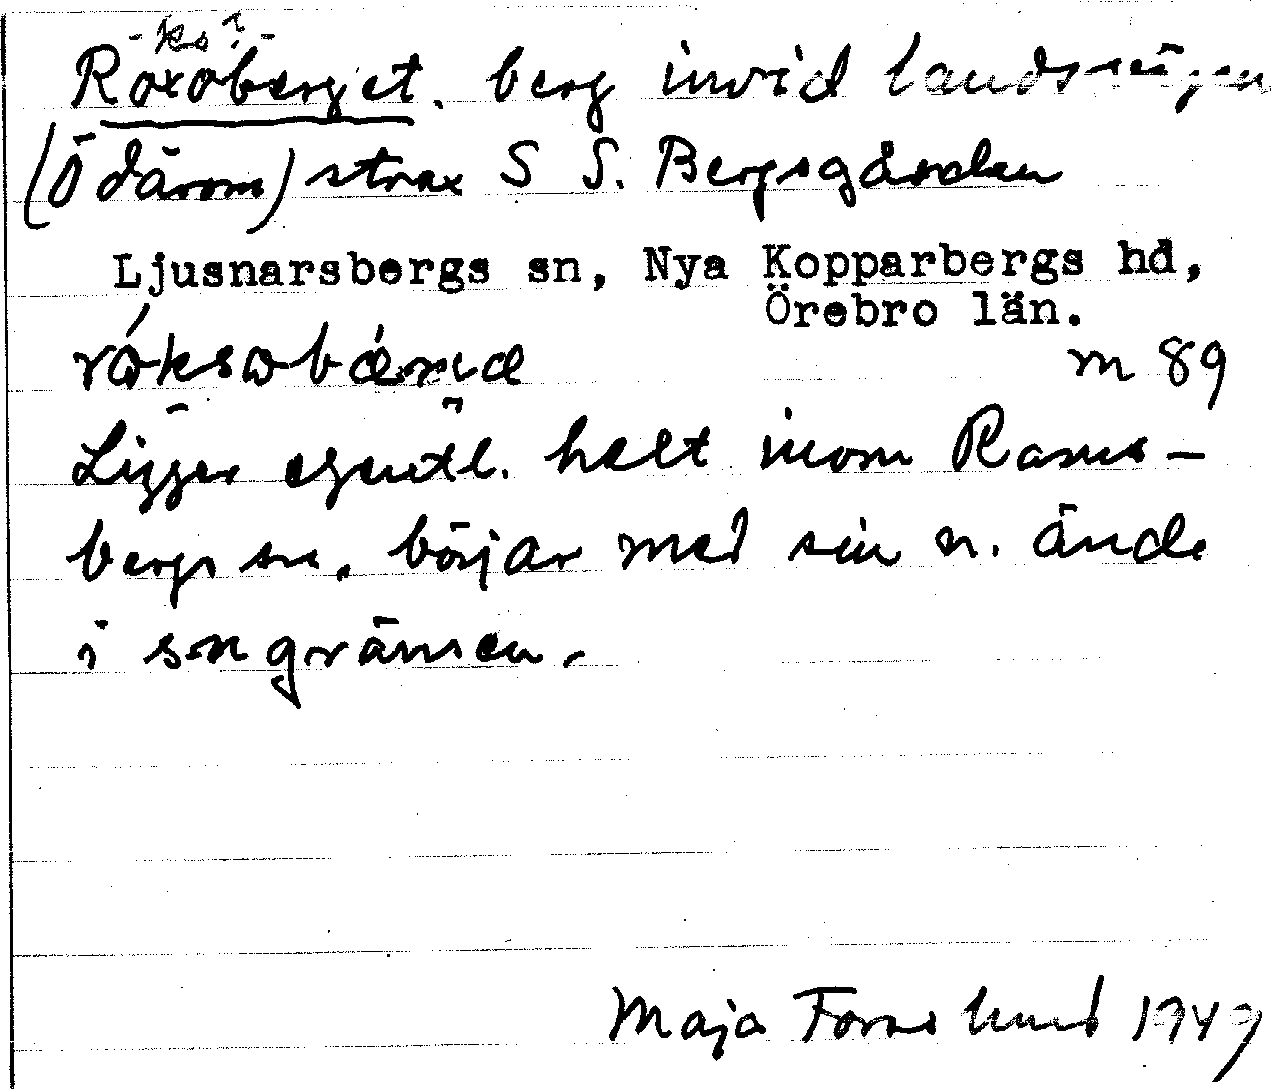 -ks?-
Roxoberget. berg invid landsvägen
(Ö därom) strax S S. Bergsgården
Ljusnarsbergs sn, Nya Kopparbergs hd,
Örebro län.
m 89
Ligger egentl. helt inom Rams-
bergs sn. börjar med sin n. ände
i sngränsen.
Maja Forslund 1949